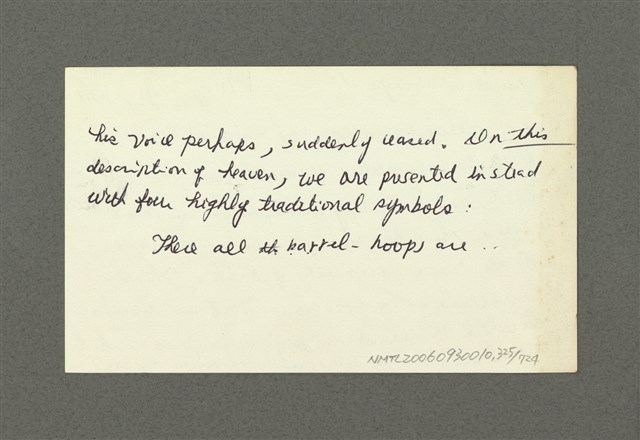 his voice perhaps, suddenly ceased. In this
description of heaven, we are presented instead
with four highly traditional symbols:
There all the barrel-hoops are ..
NMTL20060930010,325/724